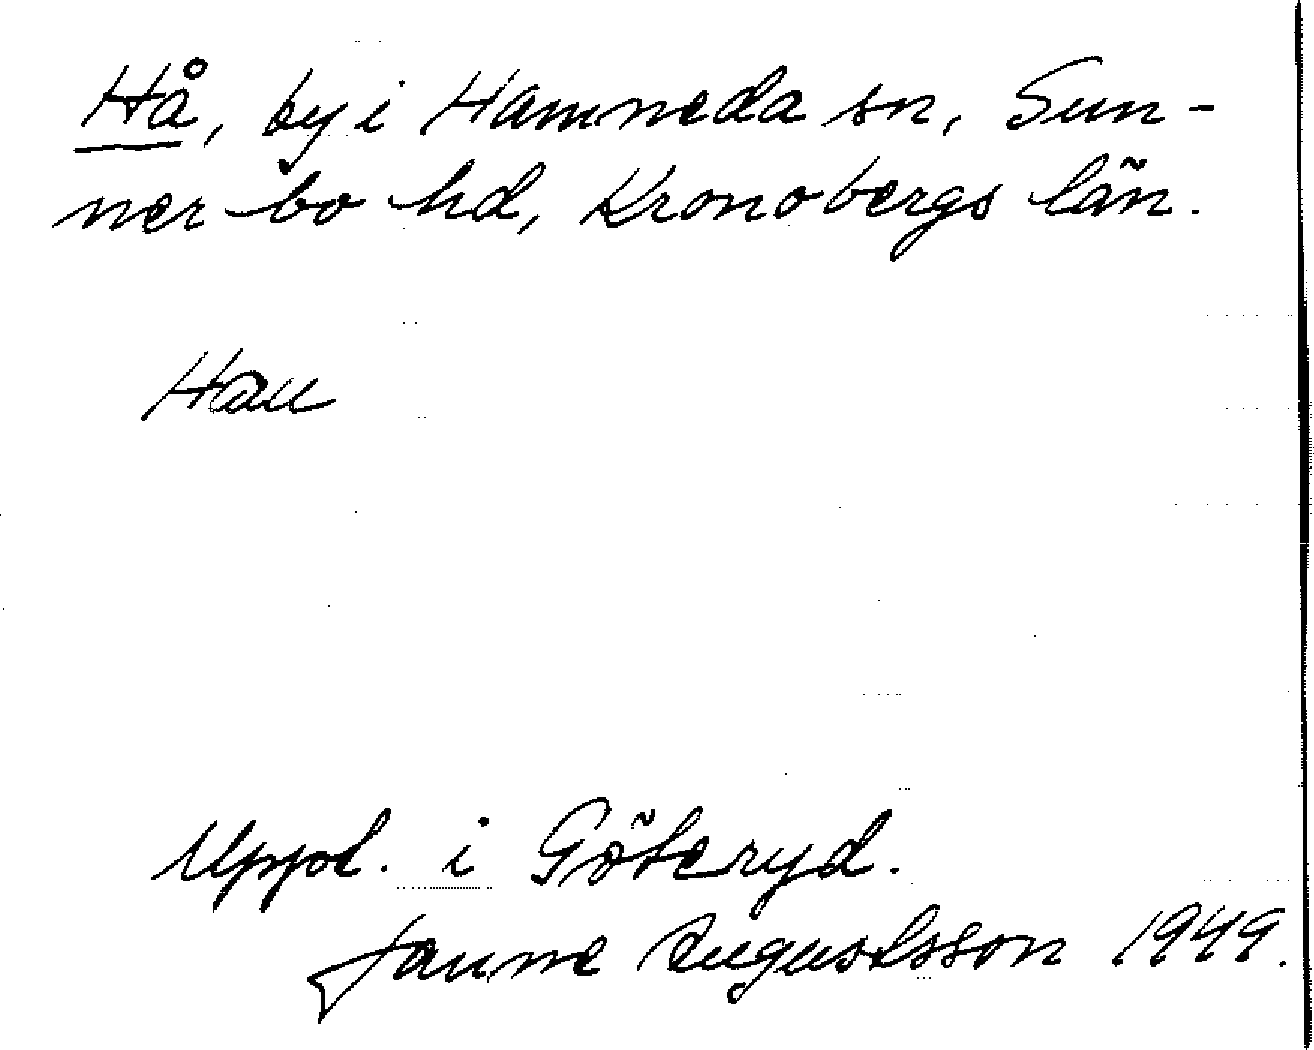 Hå, by i Hamneda sn, Sun-
nerbo hd, Kronobergs län.
Hau
Uppt. i Göteryd.
Janne Augustsson 1949.